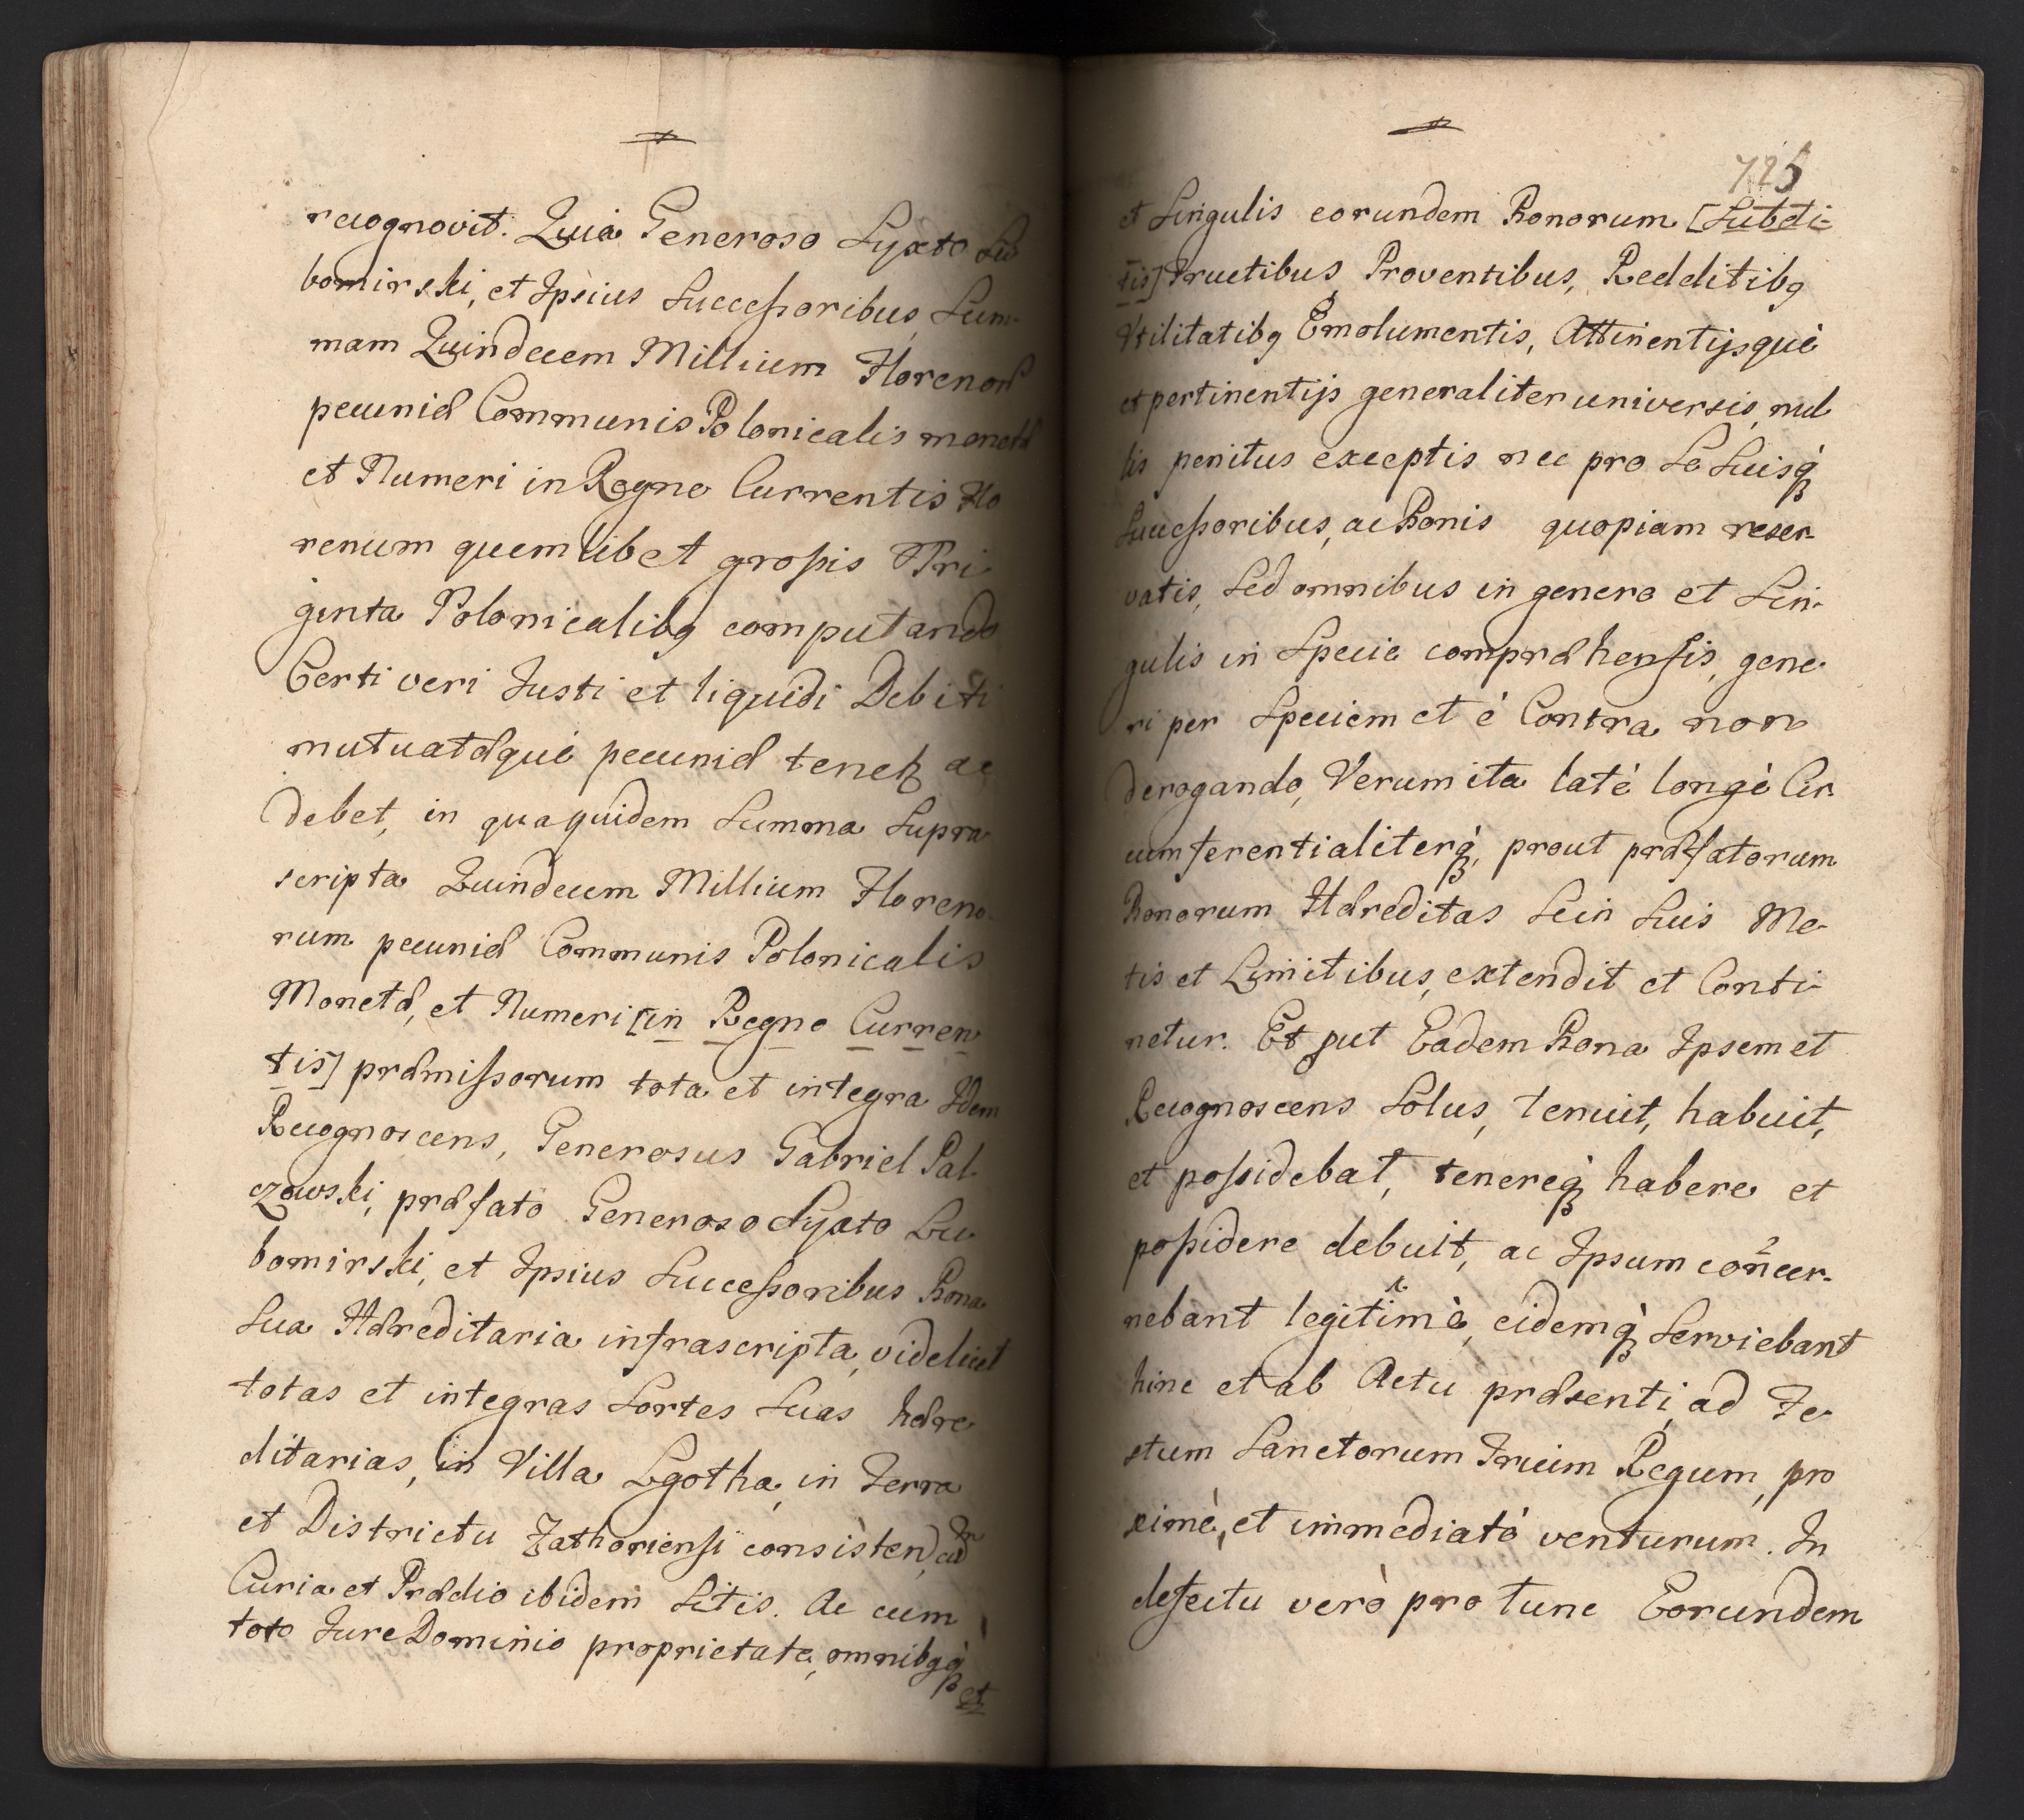 recognovit. Quia Generoso Syxto Lu
bomirski, et Ipsius Successoribus, Sum-
mam Quindecem Millium Florenor
pecuniæ Communis Polonicalis monetæ
et Numeri in Regno Currentis Flo
renum quemlibet grossis Tri-
ginta Polonicalibq computando
Certi veri Justi et liquidi Debiti
mutuatæquè pecuniæ tenetꝶ ac
debet, in qua quidem Summa Supra
scripta Quindecem Millium Floreno-
rum pecuniæ Communis Polonicalis
Monetæ, et Numeri [in Regno Curren
tis] præmissorum tota et integra Idem
Recognoscens, Generosus Gabriel Pal-
czowski, præfato Generoso Syxto Lu
bomirski, et Ipsius Successoribus Bona
Sua Hæreditaria infrascripta, videlicet
totas et integras Sortes Suas hære
ditarias, in Villa Lgotha, in Terra
et Districtu Zathoriensi consisten, cu
Curia et Prædio ibidem Sitis. Ac cum
toto Jure Dominio proprietate, omnibqq̀
et
725
et Singulis eorundem Bonorum [Subdi-
tis] Fructibus, Proventibus, Redditibq
Utilitatibq Emolumentis, Attinentijsquè
et pertinentijs generaliter universis, nul
lis penitus exceptis nec pro Se Suisq̀
Successoribus, ac Bonis quopiam reser-
vatis, Sed omnibus in genere et Sin-
gulis in Specie compræhensis, gene-
ri per Speciem et è Contra non
derogando, Verum ita latè longè Cir-
cumferentialiterq̀, prout præfatorum
Bonorum Hæreditas Sein Suis Me-
tis et Limitibus, extendit et Conti-
netur. Et put Eadem Bona Ipsemet
Recognoscens Solus, tenuit, habuit,
et possidebat, tenereq̀ habere et
possidere debuit, ac Ipsum concer-
nebant legitimè, eidemq̀ Serviebant
hinc et ab Actu præsenti, ad Fe-
stum Sanctorum Trium Regum, pro
ximè, et immediatè venturum. In
defectu verò pro tunc Eorundem